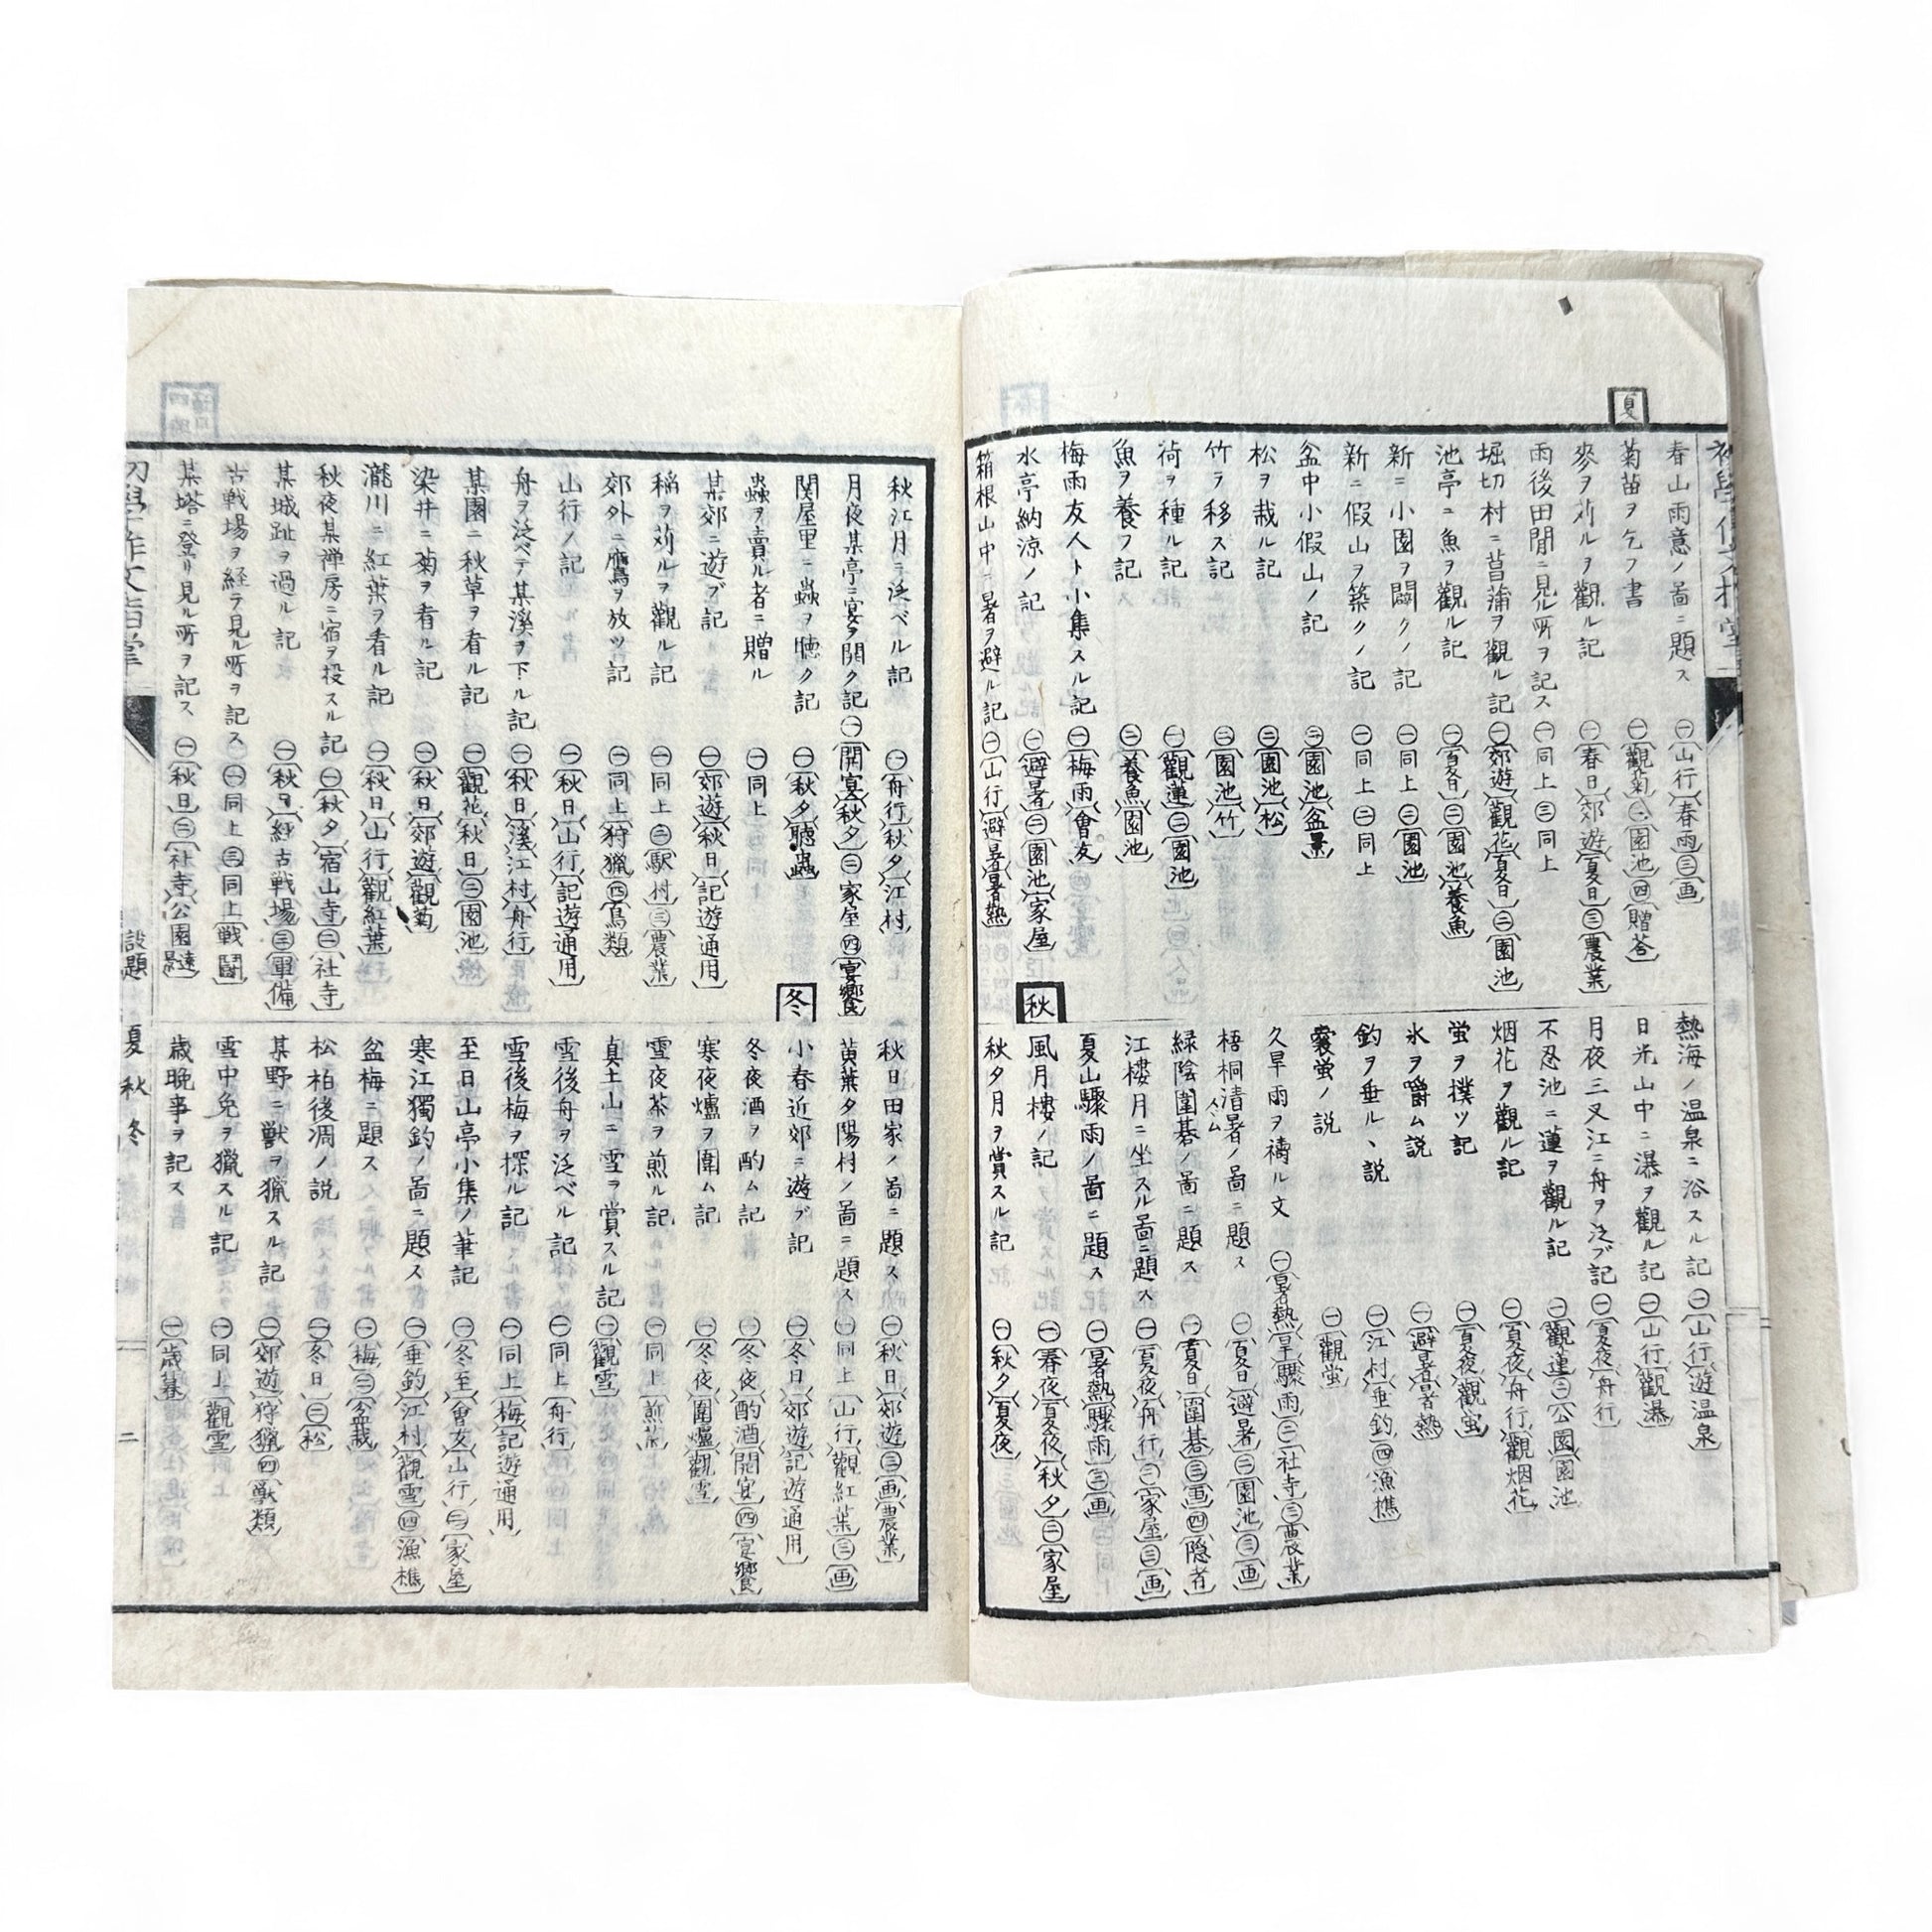 夏
春山雨意ノ啚ニ題ス ㊀(山行)(春雨)㊂(画)
菊苗ヲ乞フ書 ㊀(觀菊)㊁(園池)㊃(贈荅)
麥ヲ刈ルヲ觀ル記 ㊀(春日)(郊遊)(夏日)㊂(農業)
雨後田間ニ見ル所ヲ記ス ㊀同上㊂同上
堀切村ニ菖蒲ヲ觀ル記 ㊀(郊遊)(觀花)(夏日)㊁(園池)
池亭ニ魚ヲ觀ル記 ㊀(夏日)㊁(園池)(養魚)
新ニ小園ヲ闢クノ記 ㊀同上㊁(園池)
新ニ假山ヲ築クノ記 ㊀同上㊁同上
盆中小假山ノ記 ㊁(園池)(盆景)
松ヲ栽ル記 ㊁(園池)(松)
竹ヲ移ス記 ㊁(園池)(竹)
荷ヲ種ル記 ㊀(觀蓮)㊁(園池)
魚ヲ養フ記 ㊁(養魚)(園池)
梅雨友人ト小集スル記 ㊀(梅雨)(會友)
水亭納涼ノ記 ㊀(避暑)㊁(園池)(家屋)
箱根山中ニ暑ヲ避ル記 ㊀(山行)(避暑)(暑熱)
熱海ノ温泉ニ浴スル記 ㊀(山行)(遊温泉)
日光山中ニ瀑ヲ觀ル記 ㊀(山行)(觀瀑)
月夜三叉江ニ舟ヲ泛ブ記 ㊀(夏夜)(舟行)
不忍池ニ蓮ヲ觀ル記 ㊀(觀蓮)㊁(公園)(園池)
烟花ヲ觀ル記 ㊀(夏夜)(舟行)(觀烟花)
蛍ヲ撲ツ記 ㊀(夏夜)(觀蛍)
氷ヲ嚼ム説 ㊀(避暑)(暑熱)
釣ヲ垂ルヽ説 ㊀(江村)(垂釣)㊃(漁樵)
嚢蛍ノ説 ㊀(觀蛍)
久旱雨ヲ禱ル文 ㊀(暑熱)(旱)(驟雨)㊁(社寺)㊂(農業)
梧桐清暑ノ啚ニ題ス ㊀(夏日)(避暑)㊁(園池)㊂(画)
緑陰圍碁ノ啚ニ題ス ㊀(夏日)(圍碁)㊂(画)㊃(隠者)
江樓月ニ坐スル啚ニ題ス ㊀(夏夜)(舟行)㊁(家屋)㊂(画)
夏山驟雨ノ啚ニ題ス ㊀(暑熱)(驟雨)㊂(画)
秋
風月樓ノ記 ㊀(春夜)(夏夜)(秋夕)㊁(家屋)
秋夕月ヲ賞スル記 ㊀(秋夕)(夏夜)
秋江月ニ泛ベル記 ㊀(舟行)(秋夕)(江村)
月夜某亭ニ宴ヲ開ク記 ㊀(開宴)(秋夕)㊁(家屋)㊃(宴饗)
関屋里ニ蟲ヲ聴ク記 ㊀(秋夕)(聴蟲)
蟲ヲ賣ル者ニ贈ル ㊀同上
某郊ニ遊ブ記 ㊀(郊遊)(秋日)(記遊通用)
稲ヲ刈ルヲ觀ル記 ㊀同上㊁(駅村)㊂(農業)
郊外ニ鷹ヲ放ツ記 ㊀同上(狩猟)㊃(鳥類)
山行ノ記 ㊀(秋日)(山行)(記遊通用)
舟ヲ泛ベテ某溪ヲ下ル記 ㊀(秋日)(溪江村)(舟行)
某園ニ秋草ヲ看ル記 ㊀(觀花)(秋日)㊁(園池)
染井ニ菊ヲ看ル記 ㊀(秋日)(郊遊)(觀菊)
瀧川ニ紅葉ヲ看ル記 ㊀(秋日)(山行)(觀紅葉)
秋夜某禅房ニ宿ヲ投スル記 ㊀(秋夕)(宿山寺)㊁(社寺)
某城趾ヲ過ル記 ㊀(秋日)(經古戦場)㊂(軍備)
古戦場ヲ経テ見ル所ヲ記ス ㊀同上㊂同上(戦鬪)
某塔ニ登リ見ル所ヲ記ス ㊀(秋日)㊁(社寺)(公園)
秋日田家ノ啚ニ題ス ㊀(秋日)(郊遊)㊂(画)(農業)
黄葉夕陽村ノ啚ニ題ス ㊀同上(山行)(觀紅葉)㊂(画)
冬
小春近郊ニ遊ブ記 ㊀(冬日)(郊遊)(記遊通用)
冬夜酒ヲ酌ム記 ㊀(冬夜)(酌酒)(開宴)㊃(宴饗)
寒夜爐ヲ圍ム記 ㊀(冬夜)(圍爐)(觀雪)
雪夜茶ヲ煎ル記 ㊀同上(煎茶)
真土山ニ雪ヲ賞スル記 ㊀(觀雪)
雪後舟ヲ泛ベル記 ㊀同上(舟行)
雪後梅ヲ探ル記 ㊀同上(梅)(記遊通用)
至日山亭小集ノ筆記 ㊀(冬至)(會友)(山行)㊁(家屋)
寒江獨釣ノ啚ニ題ス ㊀(垂釣)(江村)(觀雪)㊃(漁樵)
盆梅ニ題ス ㊀(梅)㊁(盆栽)
松柏後凋ノ説 ㊀(冬日)㊁(松)
某野ニ獣ヲ猟スル記 ㊀(郊遊)(狩猟)㊃(獣類)
雪中兔ヲ猟スル記 ㊀同上(觀雪)
歳晩事ヲ記ス ㊀(歳暮)
初學作文指掌 設題 夏 秋 冬 二